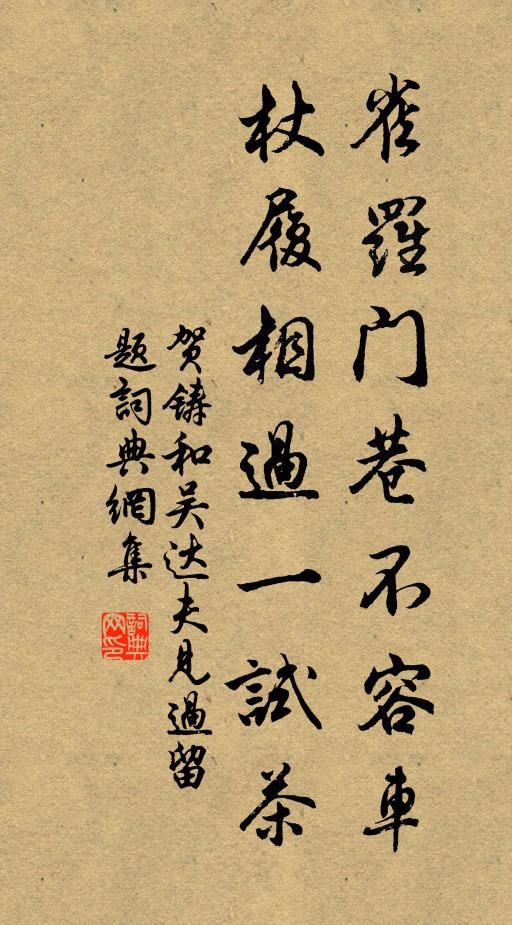 雀羅門巷不容車
杖履相過一試茶
贺鑄和吴达夫見過留
題詞典網集
詞典网印